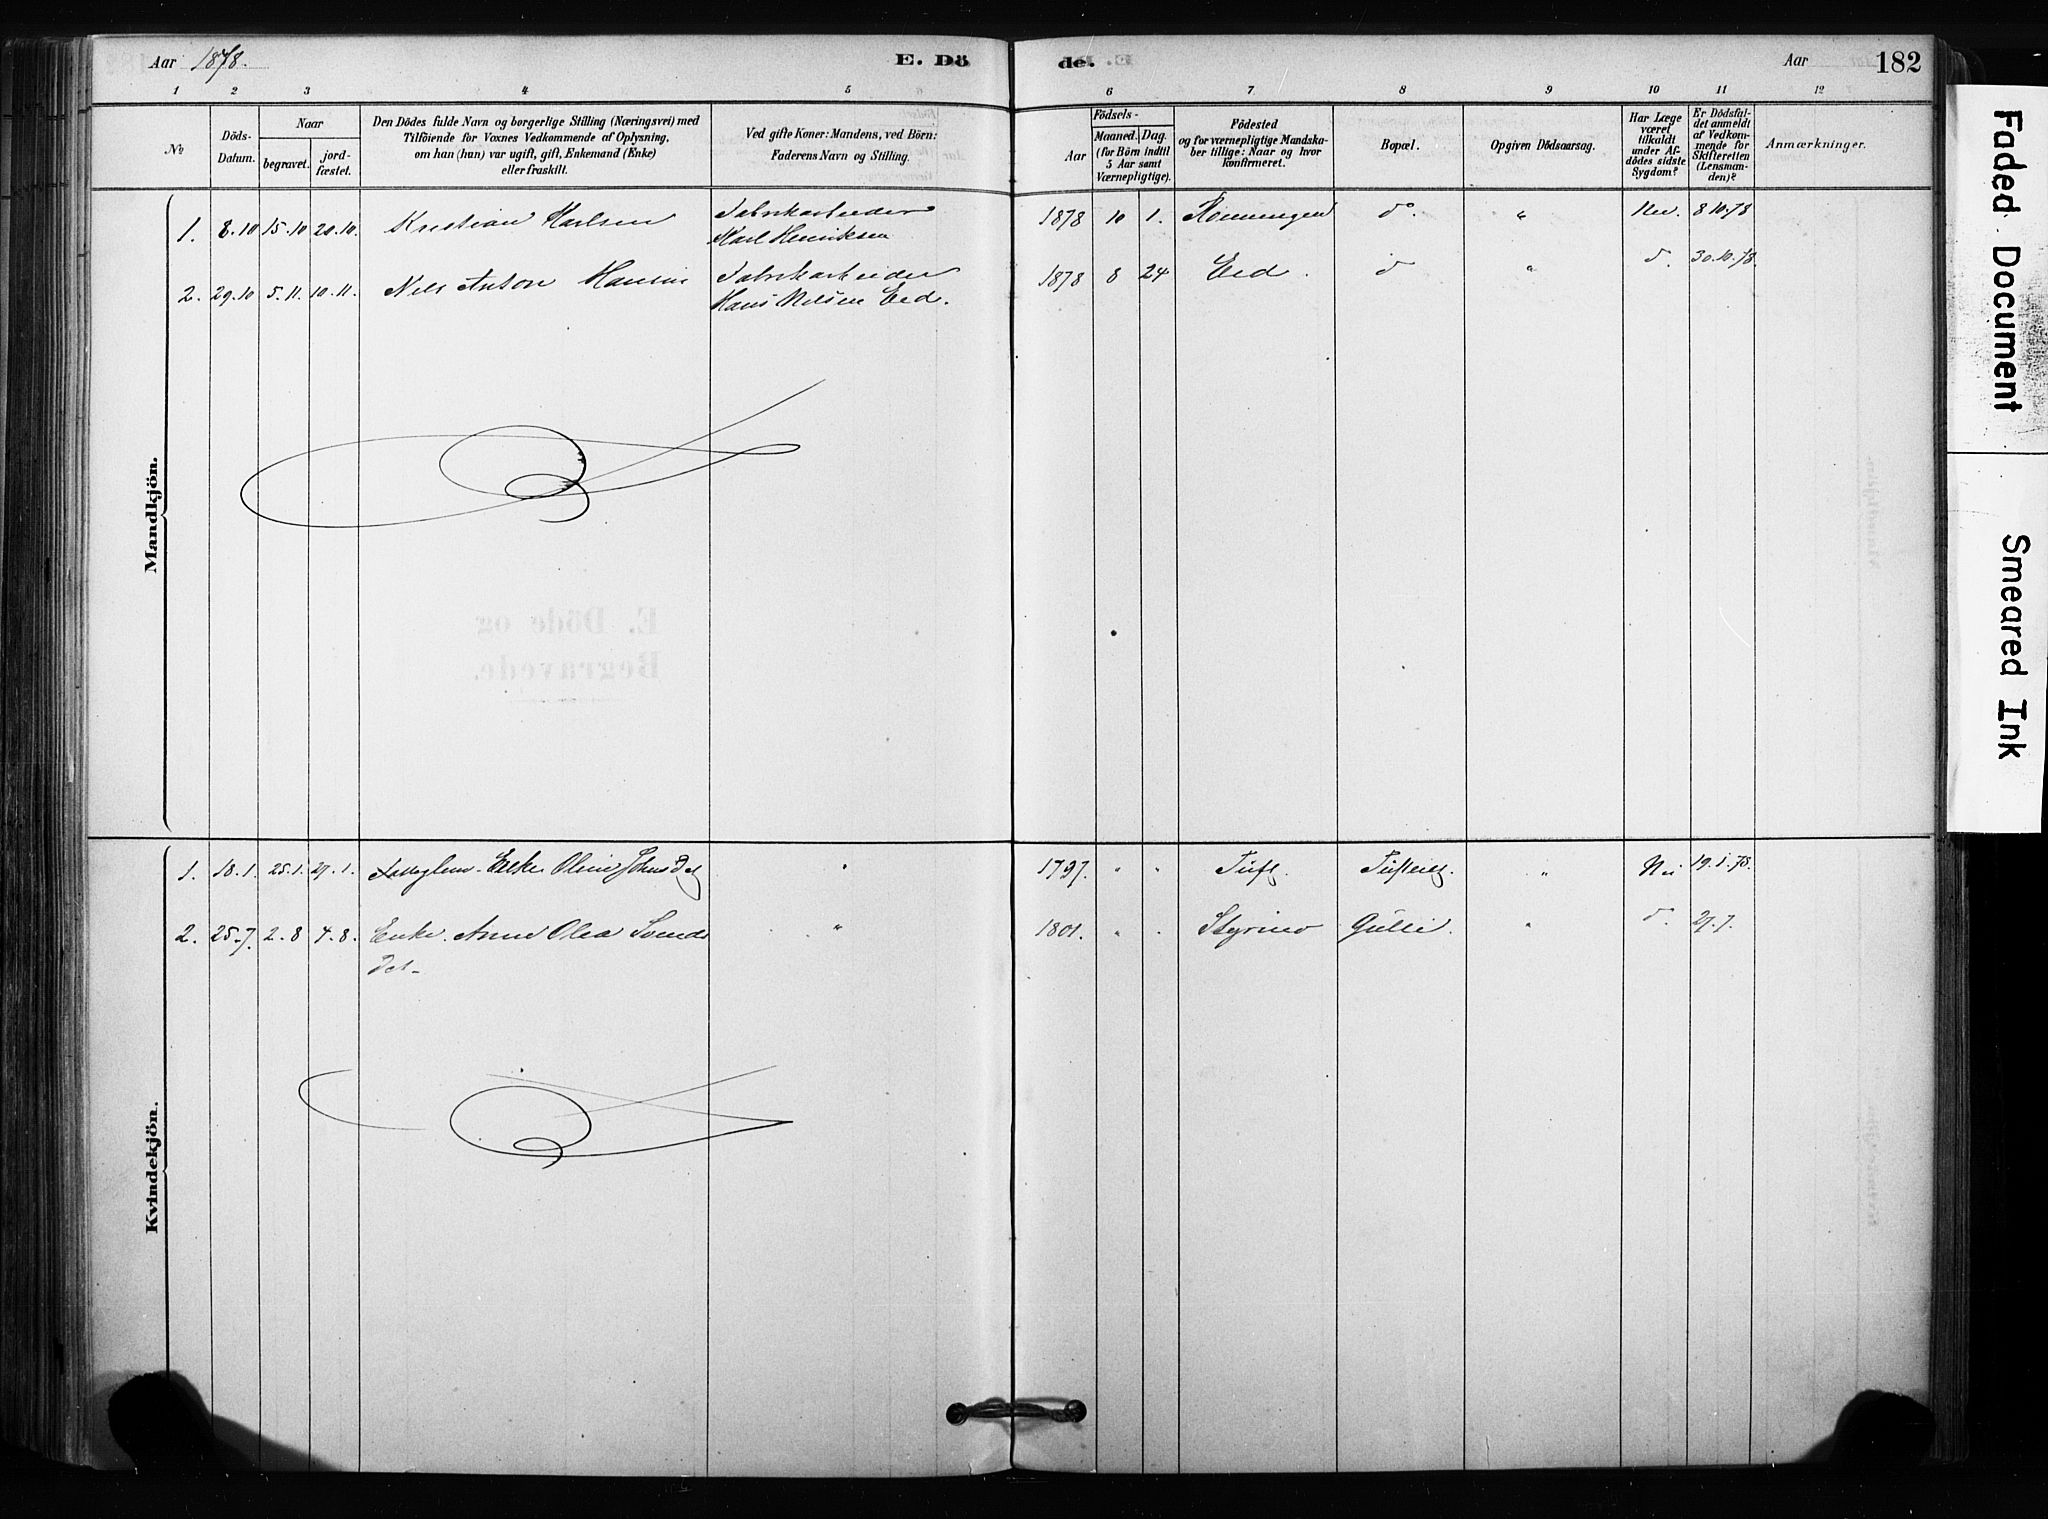 Aar 1878.
E. Dö
de.
Aar
182
1 2 3 4 5 6 7 8 9 10 11 12
No
Döds-
Datum.
Naar
begravet.
jord-
fæstet.
Den Dödes fulde Navn og borgerlige Stilling (Næringsvei) med
Tilföiende for Voxnes Vedkommende af Oplysning,
om han (hun) var ugift, gift, Enkemand (Enke)
eller fraskilt.
Ved gifte Koner: Mandens, ved Börn:
Faderens Navn og Stilling.
Födsels-
Aar
Maaned. Dag.
(for Börn indtil
5 Aar samt
Værnepligtige).
Födested
og for værnepligtige Mandska-
ber tillige: Naar og hvor
konfirmeret.
Bopæl.
Opgiven Dödsaarsag.
Har Læge
været
tilkaldt
under Af-
dödes sidste
Sygdom?
Er Dödsfal-
det anmeldt
af Vedkom-
mende for
Skifteretten
(Lensman-
den)?
Anmærkninger.
Mandkjön.
1. 8.10 15.10 20.10. Kristian Karlsen Fabrikarbeider
Karl Henriksen 1878 10 1. Rönningen do. " Nei. 8.10.78
2. 29.10 5.11. 10.11. Nils Anton Hansen Fabrikarbeider
Hans Nilsen Eed. 1878 8 24 Eed. d " d. 30.10.78.
E. Döde og
Begravede.
Kvindekjön.
1. 18.1. 25.1. 27.1. Enke Oline Johnsdet " 1797. " " Tuft. " Nei 19.1.78.
2. 25.7. 2.8 4.8. Enke. Anne Olea Svends
Det. " 1801. " Gulli. " d. 27.7.
Faded Document
Smeared Ink